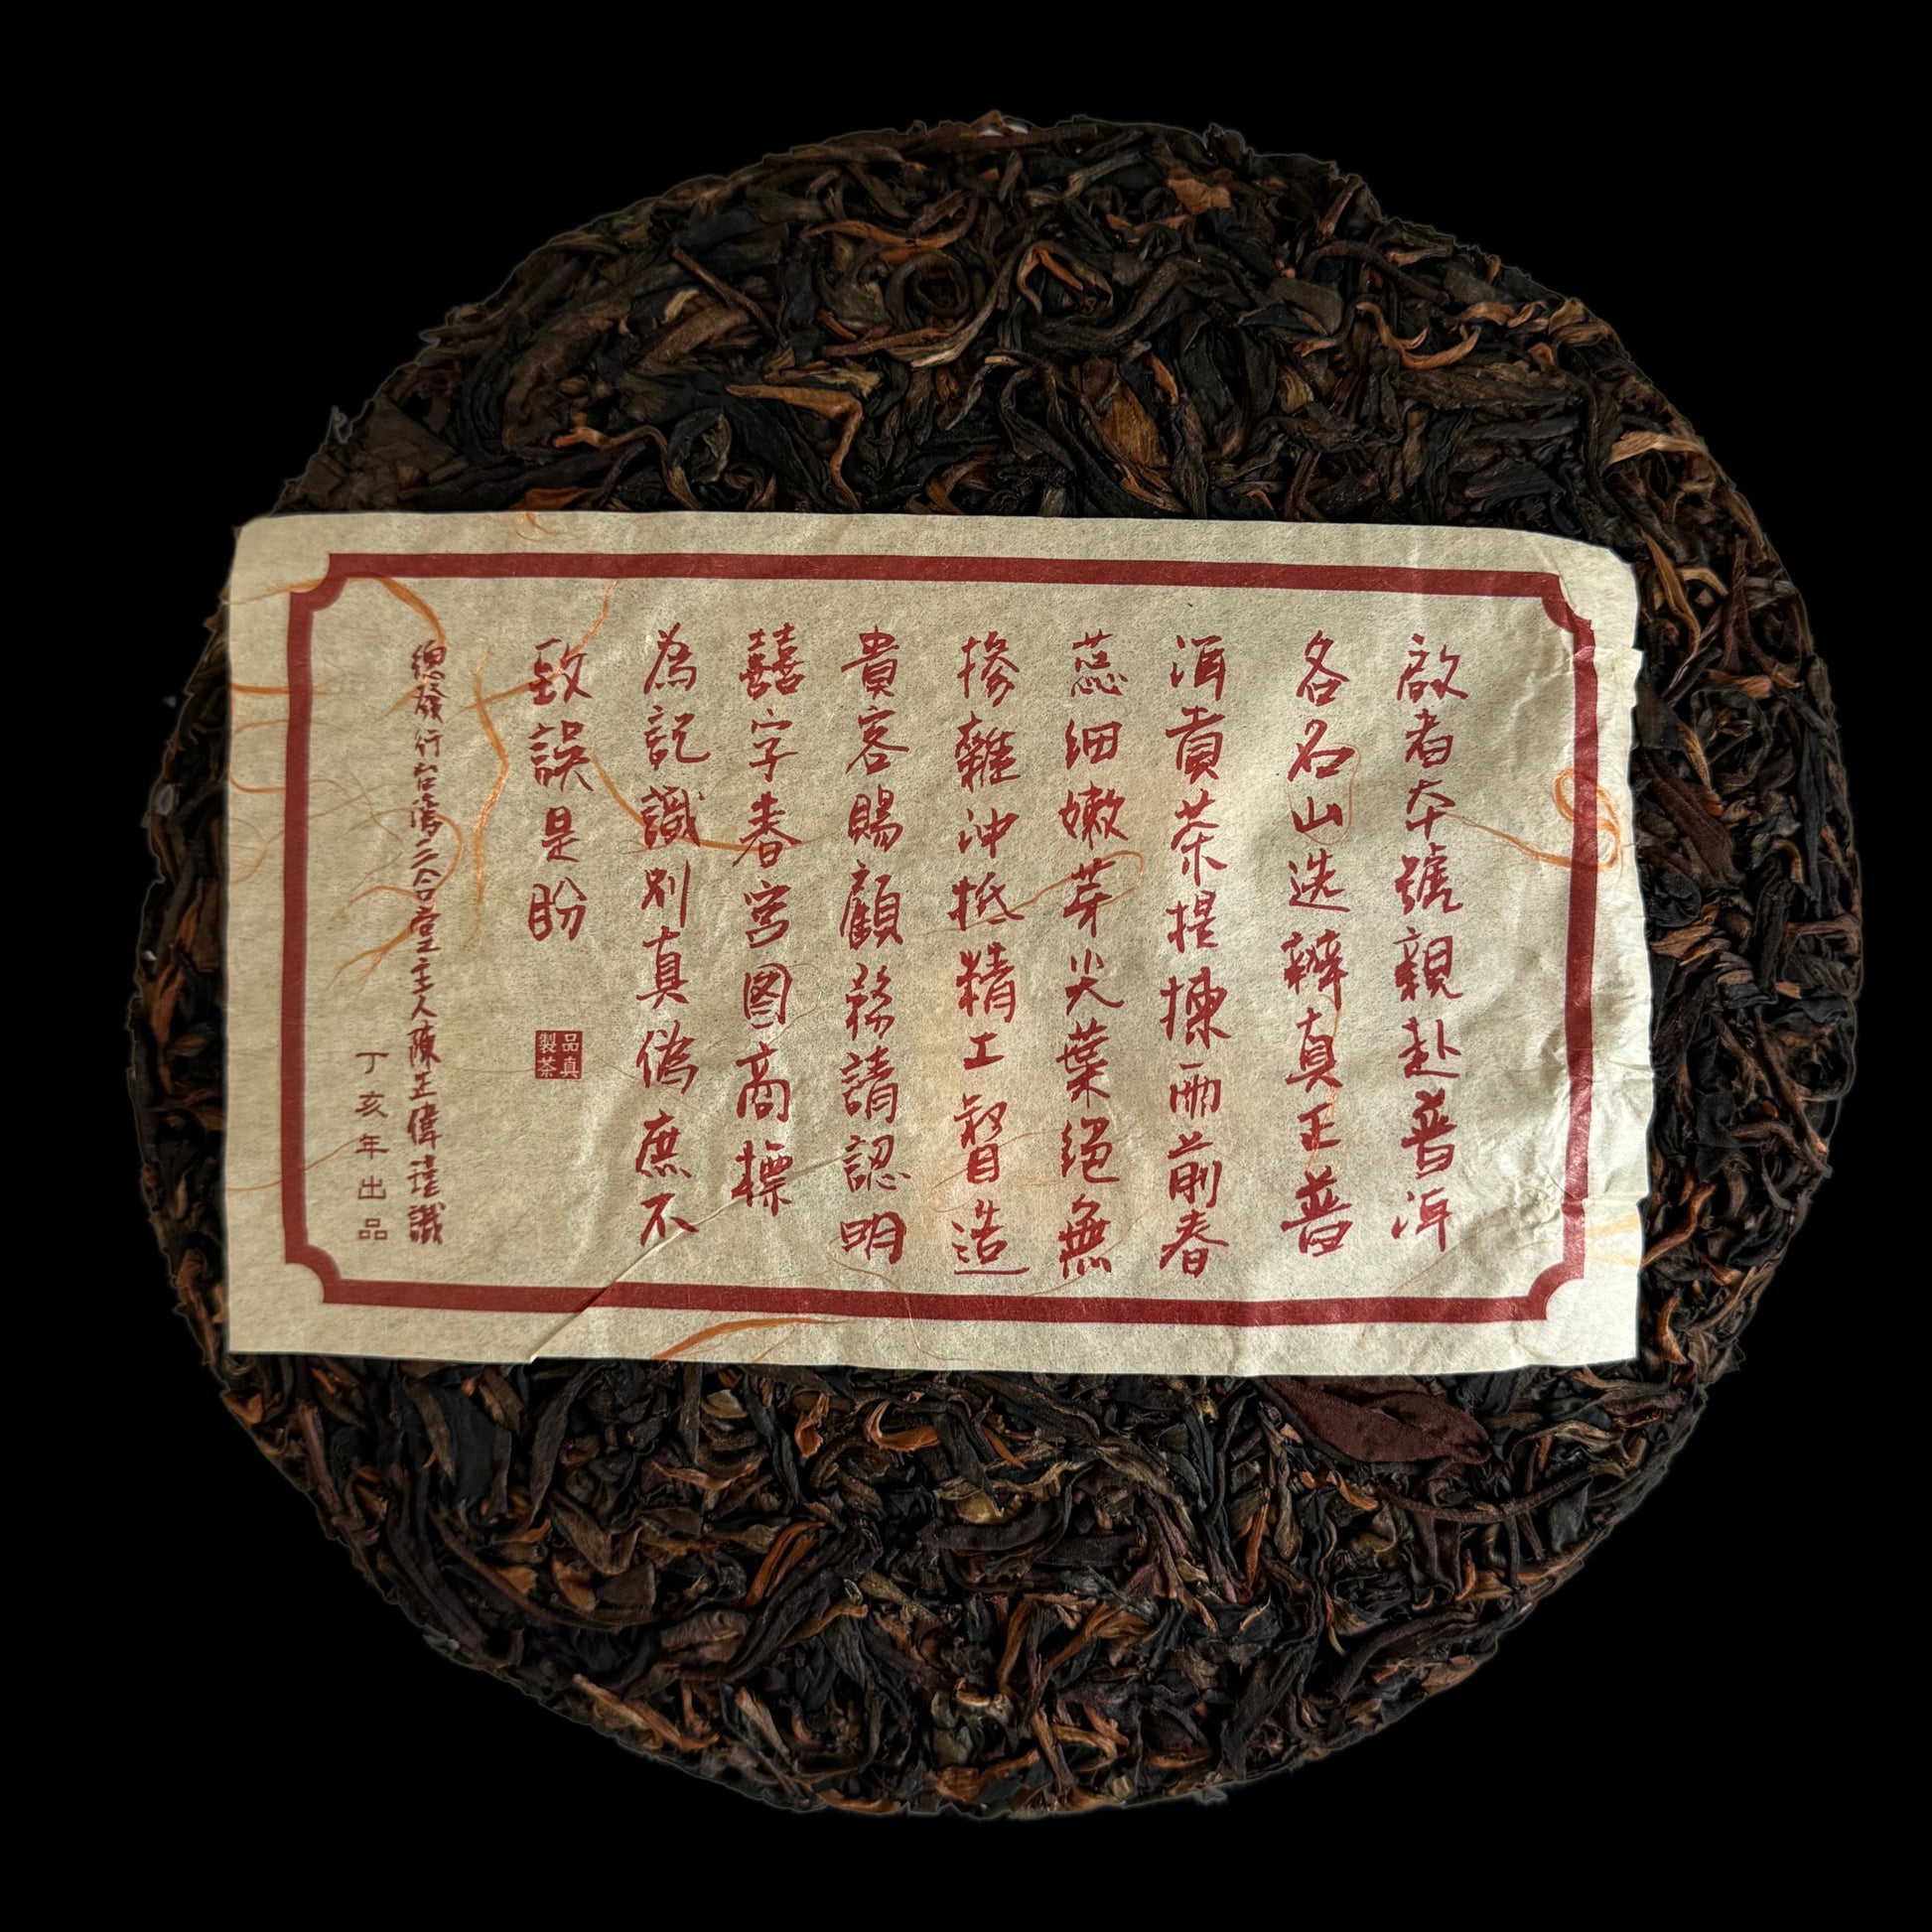 啟者本號親赴普洱
各名山选辦真正普
洱貢茶提揀雨前春
蕊细嫩芽尖葉絕無
摻雜沖抵精工督造
貴客賜顧務請認明
囍字春宮图商標
為記識別真偽庶不
致誤是盼
品真製茶
總發行台灣三合堂主人陳正偉謹識
丁亥年出品